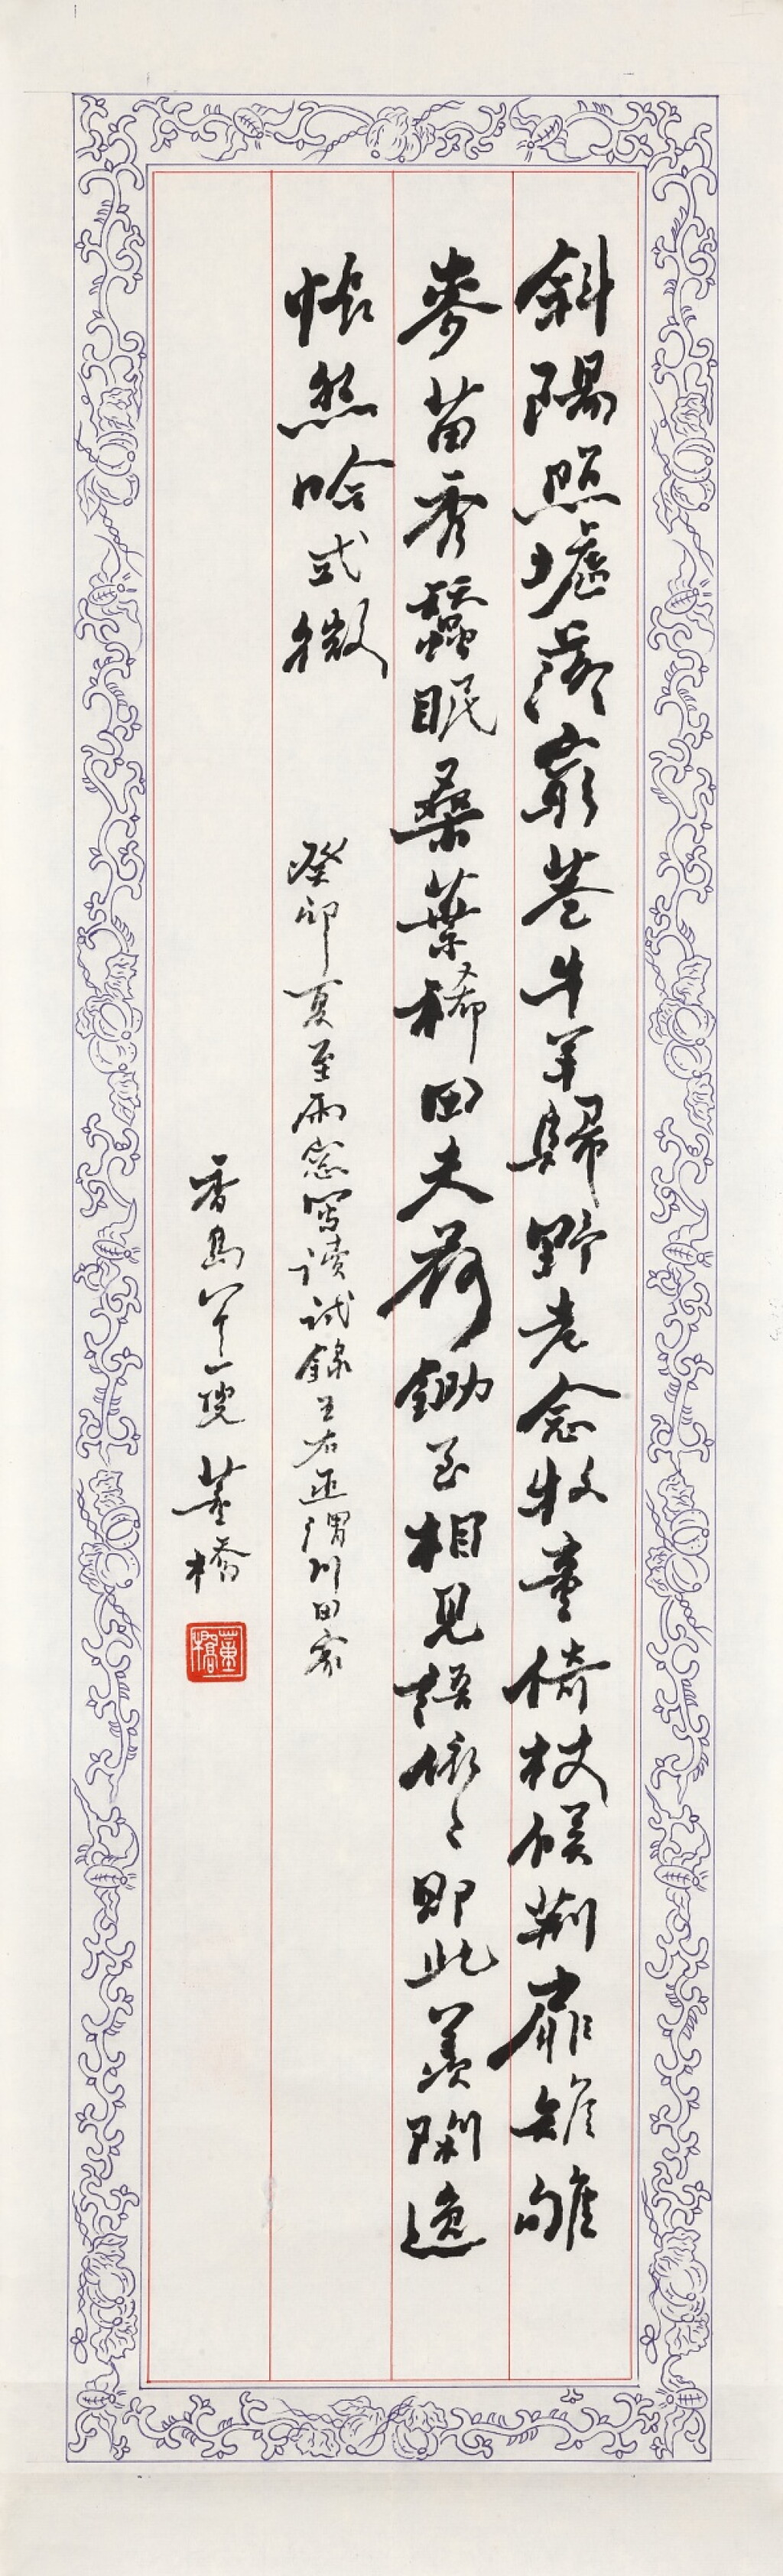 斜陽照墟落窮巷牛羊歸野老念牧童倚杖候荊扉雉雊
麥苗秀蠶眠桑葉稀田夫荷鋤至相見語依々即此羨閒逸
悵然吟式微
癸卯夏至雨窗寫讀試錄王右丞渭川田家
香島八十一叟 董橋
董橋